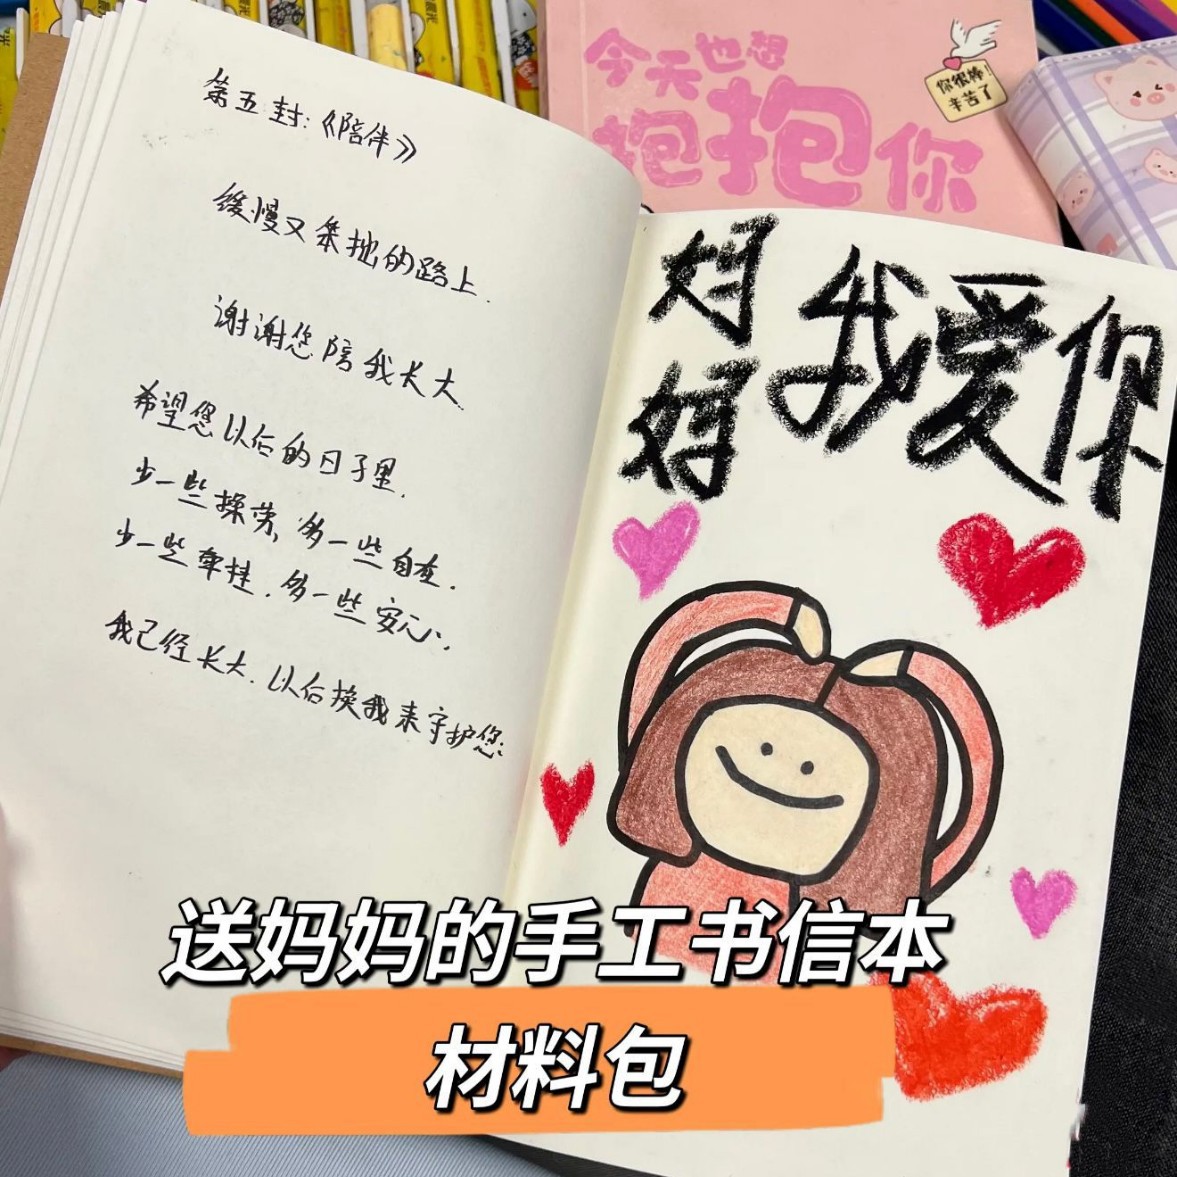 第五封:《陪伴》
缓慢又笨拙的路上.
谢谢您陪我长大.
希望您以后的日子里.
少一些操劳,多一些自在.
少一些牵挂.多一些安心.
我已经长大.以后换我来守护您.
今天也想
抱抱你
你很棒!
辛苦了
妈妈
我爱你
送妈妈的手工书信本
材料包